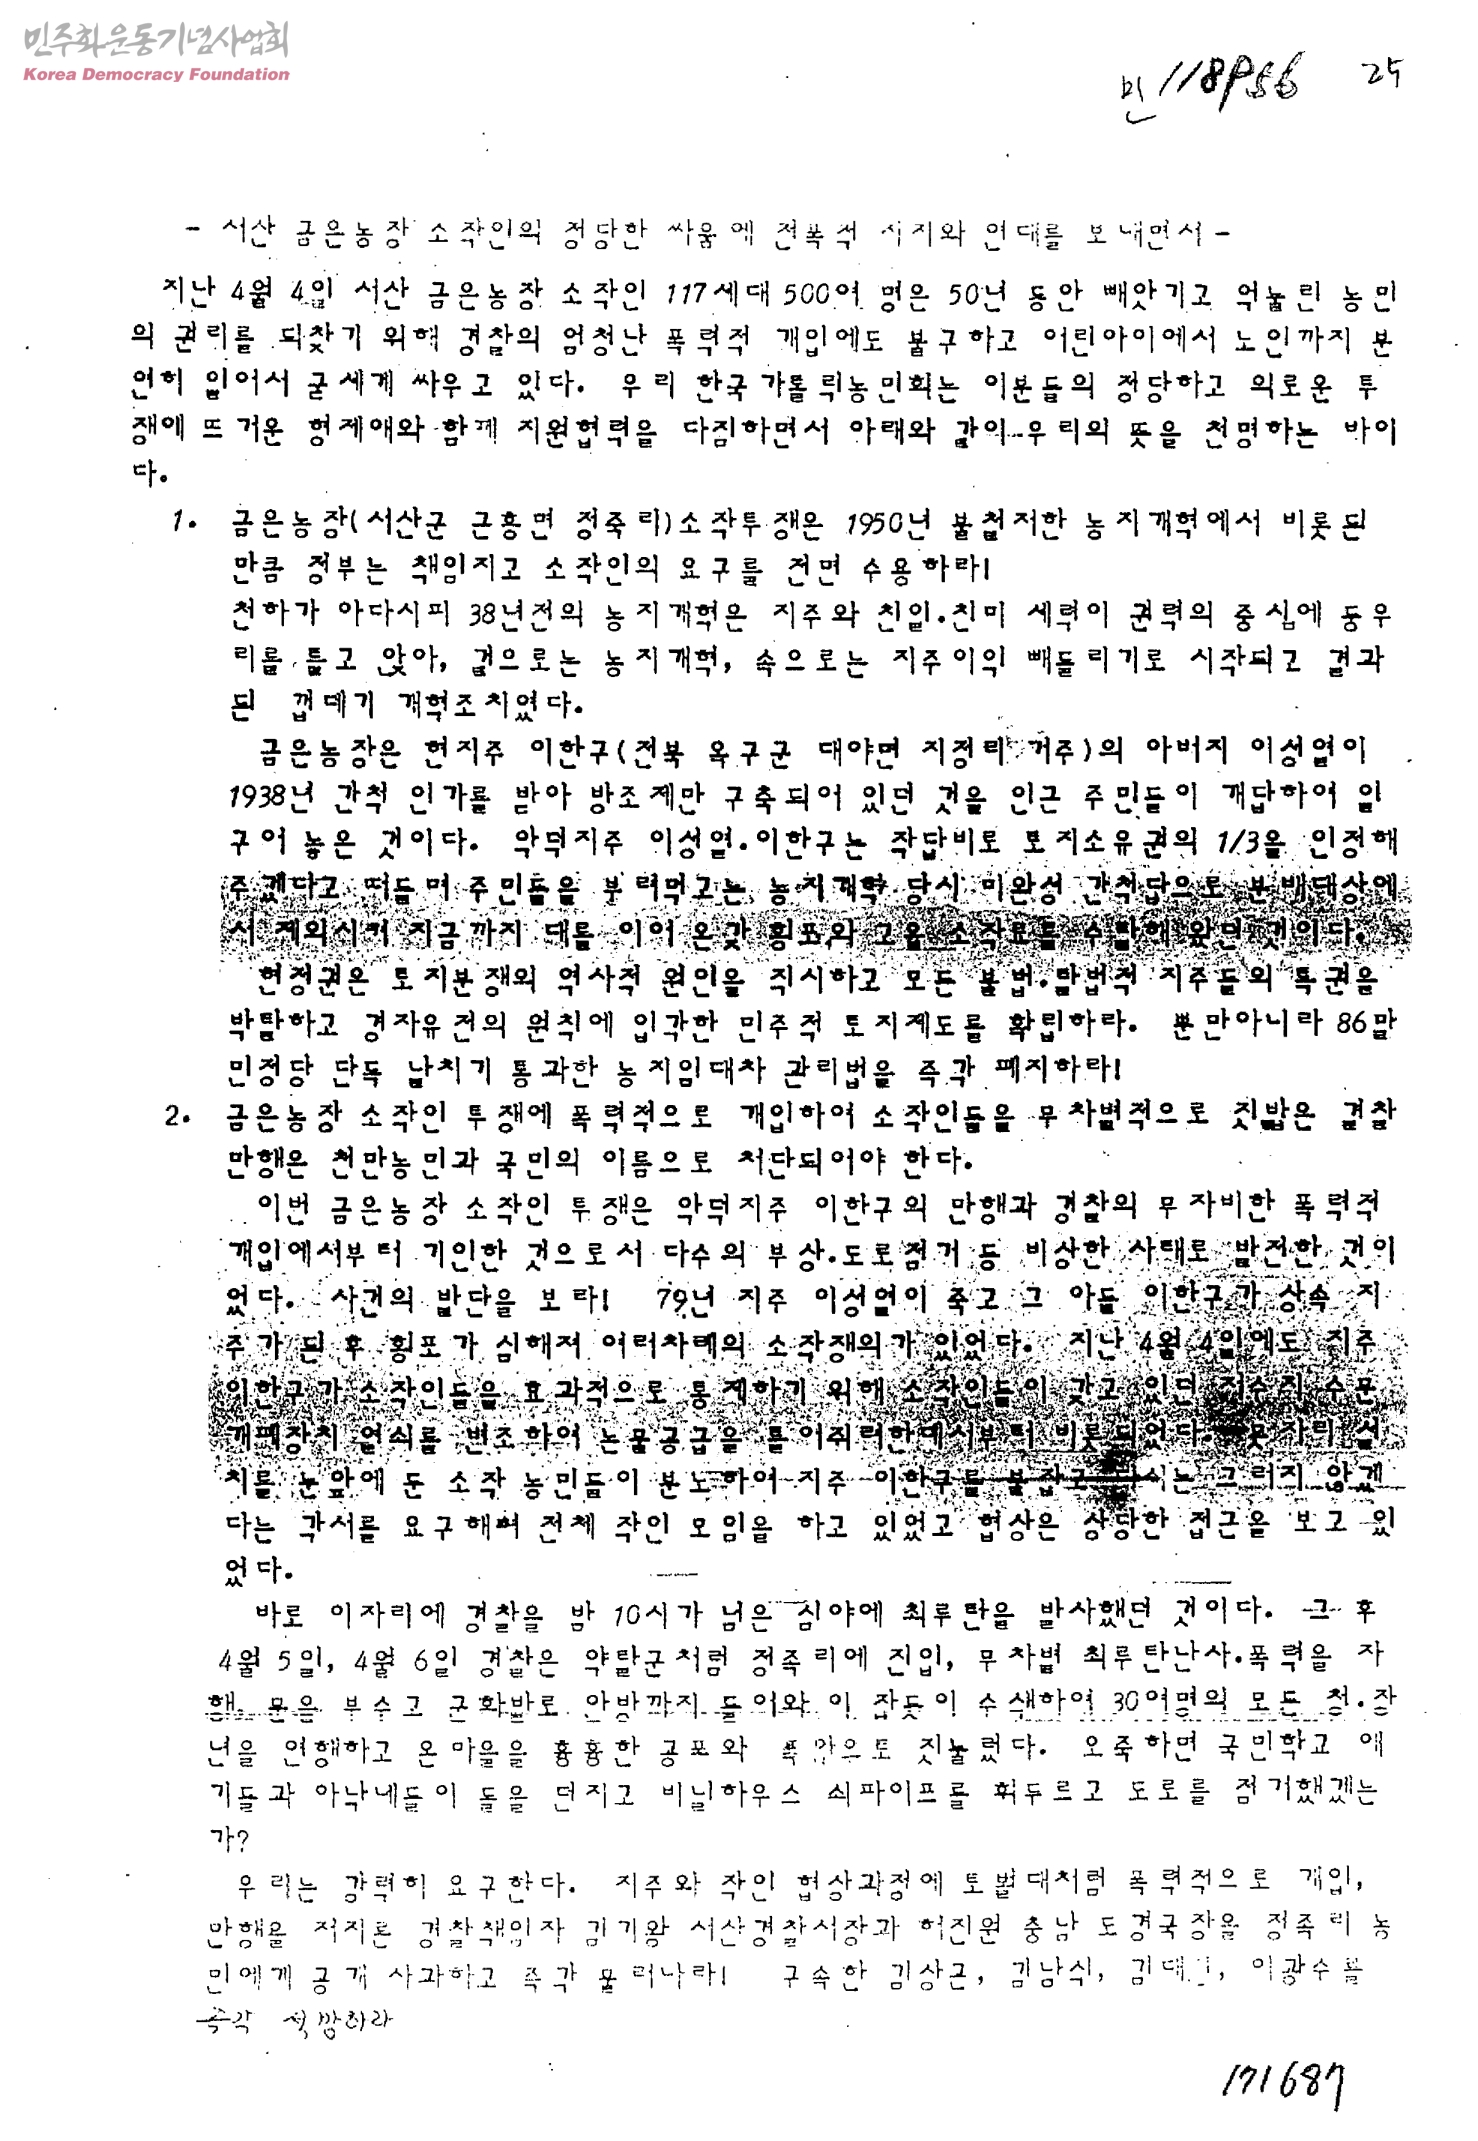 민주화운동기념사업회
Korea Democracy Foundation
민 118P56 25
- 서산 금은농장 소작인의 정당한 싸움에 전폭적 지지와 연대를 보내면서 -
지난 4월 4일 서산 금은농장 소작인 117세대 500여 명은 50년 동안 빼앗기고 억눌린 농민
의 권리를 되찾기 위해 경찰의 엄청난 폭력적 개입에도 불구하고 어린아이에서 노인까지 분
연히 일어서 굳세게 싸우고 있다. 우리 한국가톨릭농민회는 이분들의 정당하고 의로운 투
쟁에 뜨거운 형제애와 함께 지원협력을 다짐하면서 아래와 같이 우리의 뜻을 천명하는 바이
다.
1. 금은농장(서산군 근흥면 정죽리)소작투쟁은 1950년 불철저한 농지개혁에서 비롯된
만큼 정부는 책임지고 소작인의 요구를 전면 수용하라!
천하가 아다시피 38년전의 농지개혁은 지주와 친일.친미 세력이 권력의 중심에 둥우
리를 틀고 앉아, 겉으로는 농지개혁, 속으로는 지주이익 빼돌리기로 시작되고 결과
된 껍데기 개혁조치였다.
금은농장은 현지주 이한구(전북 옥구군 대야면 지정리 거주)의 아버지 이성열이
1938년 간척 인가를 받아 방조제만 구축되어 있던 것을 인근 주민들이 개답하여 일
구어 놓은 것이다. 악덕지주 이성열.이한구는 작답비로 토지소유권의 1/3을 인정해
주겠다고 떠들며 주민들을 부려먹고는 농지개혁 당시 미완성 간척답으로 분배대상에
서 제외시켜 지금까지 대를 이어 온갖 횡포와 고율 소작료를 수탈해 왔던 것이다.
현정권은 토지분쟁의 역사적 원인을 직시하고 모든 불법.탈법적 지주들의 특권을
박탈하고 경자유전의 원칙에 입각한 민주적 토지제도를 확립하라. 뿐만아니라 86말
민정당 단독 날치기 통과한 농지임대차 관리법을 즉각 폐지하라!
2. 금은농장 소작인 투쟁에 폭력적으로 개입하여 소작인들을 무차별적으로 짓밟은 경찰
만행은 천만농민과 국민의 이름으로 처단되어야 한다.
이번 금은농장 소작인 투쟁은 악덕지주 이한구의 만행과 경찰의 무자비한 폭력적
개입에서부터 기인한 것으로서 다수의 부상.도로점거 등 비상한 사태로 발전한 것이
었다. 사건의 발단을 보라! 79년 지주 이성열이 죽고 그 아들 이한구가 상속 지
주가 된 후 횡포가 심해져 여러차례의 소작쟁의가 있었다. 지난 4월 4일에도 지주
이한구가 소작인들을 효과적으로 통제하기 위해 소작인들이 갖고 있던 저수지 수문
개폐장치 열쇠를 변조하여 논물공급을 틀어쥐려한데서부터 비롯되었다. 못자리 설
치를 눈앞에 둔 소작 농민들이 분노하여 지주 이한구를 붙잡고 시는 그러지 않겠
다는 각서를 요구해며 전체 작인 모임을 하고 있었고 협상은 상당한 접근을 보고 있
었다.
바로 이자리에 경찰을 밤 10시가 넘은 심야에 최루탄을 발사했던 것이다. 그 후
4월 5일, 4월 6일 경찰은 약탈군처럼 정죽리에 진입, 무차별 최루탄난사.폭력을 자
행, 문을 부수고 군화발로 안방까지 들어와 이 잡듯이 수색하여 30여명의 모든 청.장
년을 연행하고 온마을을 흉흉한 공포와 폭압으로 짓눌렀다. 오죽하면 국민학교 애
기들과 아낙네들이 돌을 던지고 비닐하우스 쇠파이프를 휘두르고 도로를 점거했겠는
가?
우리는 강력히 요구한다. 지주와 작인 협상과정에 토벌대처럼 폭력적으로 개입,
만행을 저지른 경찰책임자 김기왕 서산경찰서장과 허진원 충남 도경국장을 정죽리 농
민에게 공개 사과하고 즉각 물러나라! 구속한 김상근, 김남식, 이광수를
즉각 석방하라
171687